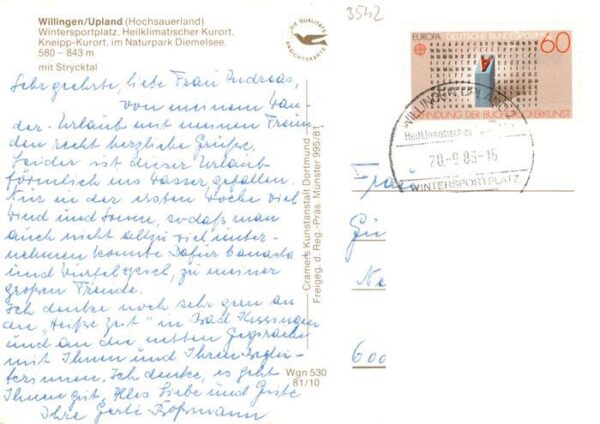 Willingen/Upland (Hochsauerland)
Wintersportplatz, Heilklimatischer Kurort,
Kneipp-Kurort, im Naturpark Diemelsee,
580 – 843 m
mit Strycktal
Sehr geehrte, liebe Frau Andreas,
von meinem Wan-
der-Urlaub mit meinen Freun-
den recht herzliche Grüße.
Leider ist dieser Urlaub
förmlich ins Wasser gefallen.
Nur in der ersten Woche viel
Wind und Sonne, sodaß man
auch nicht allzu viel unter-
nehmen konnte. Dafür Canasta
und Würfelspiel, zu meiner
großen Freude.
Ich denke noch sehr gern an
die "Heiße Zeit" in Bad Kissingen
und an die netten Gespräche
mit Ihnen und Ihren Beglei-
terinnen. Ich denke, es geht
Ihnen gut. Alles Liebe und Gute
Ihre Gerti Bößmann
DIE QUALITÄTS
ANSICHTSKARTE
Cramers Kunstanstalt Dortmund
Freigeg. d. Reg.-Präs. Münster 995/81
Wgn 530
81/10
3542
EUROPA DEUTSCHE BUNDESPOST 60
ERFINDUNG DER BUCHDRUCKERKUNST
WILLINGEN UPLAND
Heilklimatisches
WINTERSPORTPLATZ
Frau
600